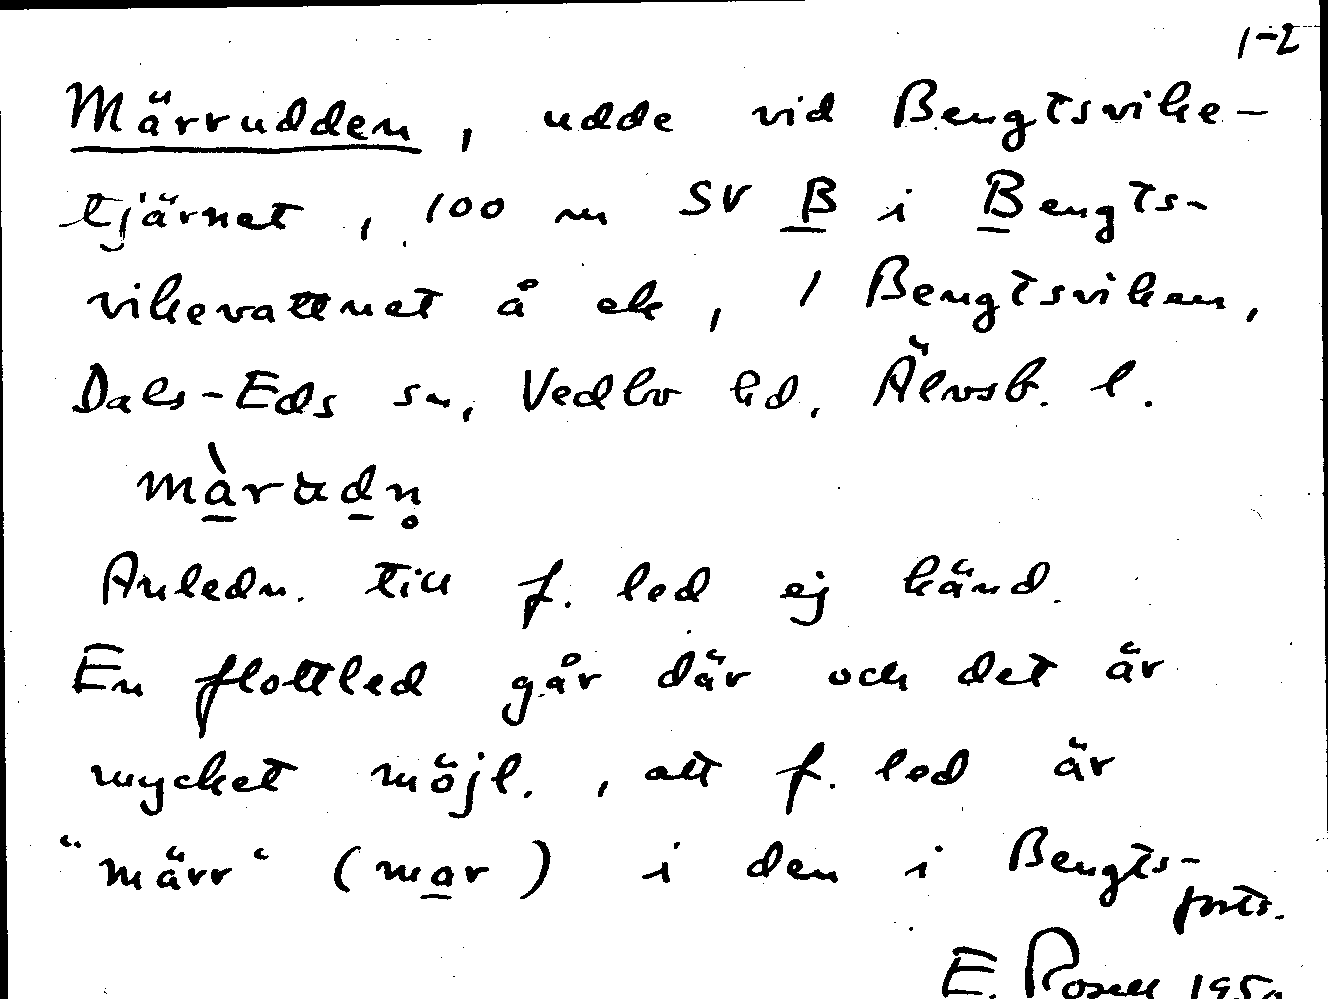 1-2
Märrudden, udde vid Bengtsvike-
tjärnet, 100 m SV B i Bengts-
vikevattnet å ek, 1 Bengtsviken,
Dals-Eds sn, Vedbo hd, Älvsb. l.
Anledn. till f. led ej känd.
En flottled går där och det är
mycket möjl., att f. led är
"märr" (mar) i den i Bengts-
forts.
E. Rosell